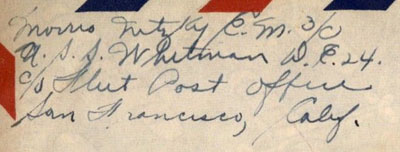 Morris Netzky E.M. 3/c
U.S.S. Whitman D.E. 24.
c/o Fleet Post Office
San Francisco, Calif.